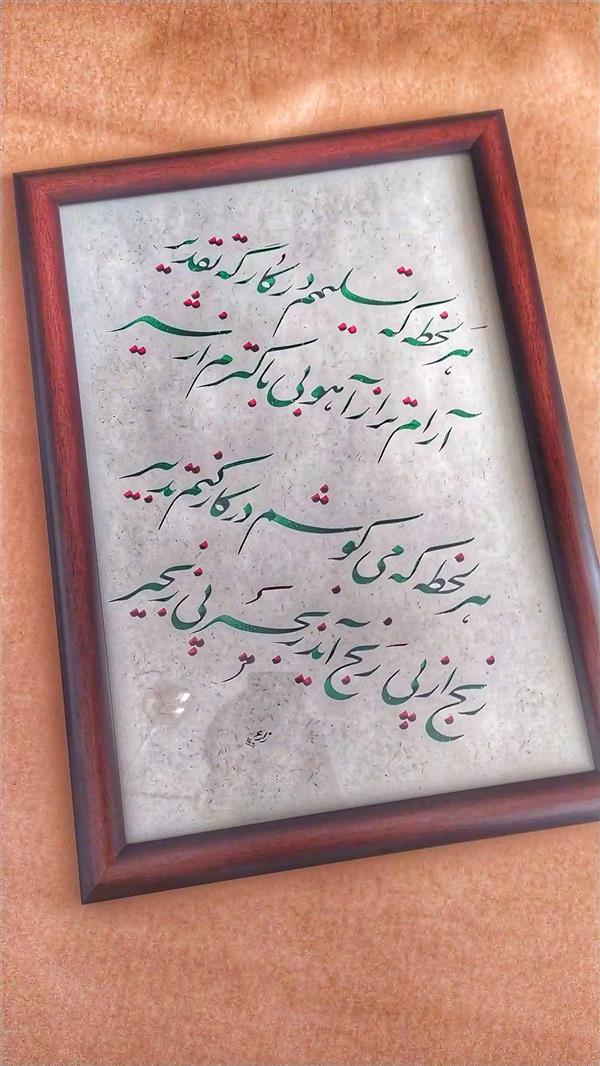 هر لحظه که تسلیمم در کارگه تقدیر
آرام تر از آهو بی باکترم از شیر
هر لحظه که می کوشم در کار کنم تدبیر
رنج از پی رنج آید زنجیر پی زنجیر